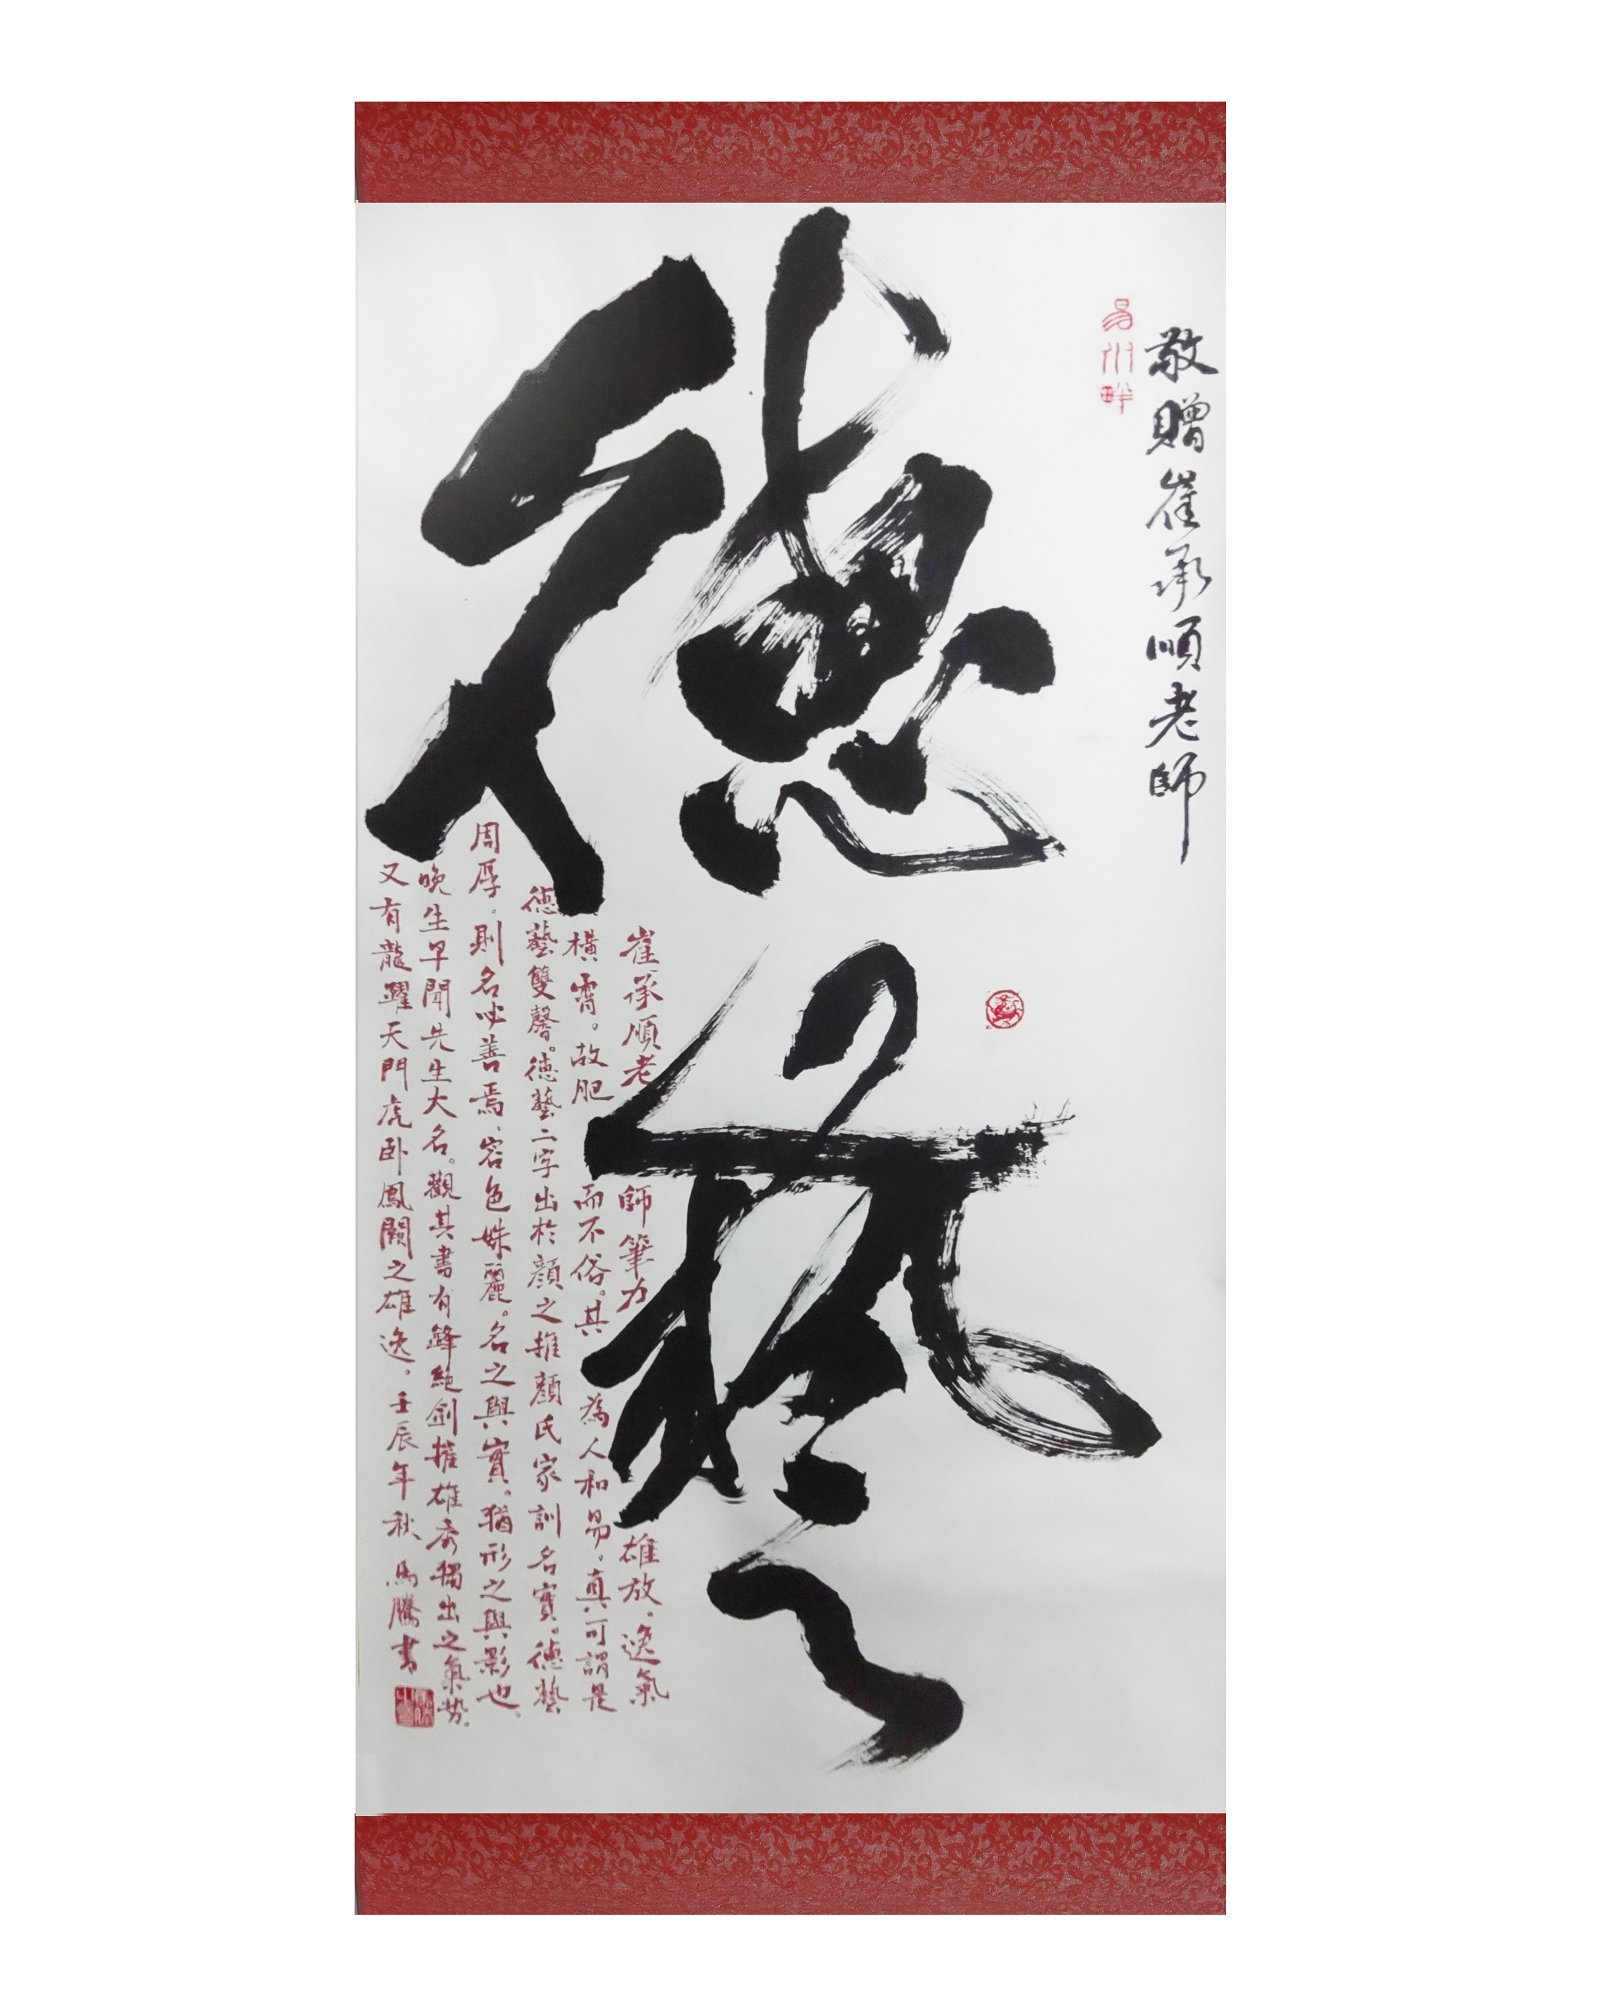 敬贈崔承順老師
易水畔
德藝
崔承順老師筆力雄放。逸氣
橫霄。故肥而不俗。其為人和易。真可謂是
德藝雙馨。德藝二字出於顏之推顏氏家訓名實。德藝
周厚。則名必善焉。容色姝麗。名之與實。猶形之與影也。
晚生早聞先生大名。觀其書有鋒絕劍摧雄秀獨出之氣勢。
又有龍躍天門虎卧鳳闕之雄逸。壬辰年秋馬騰書